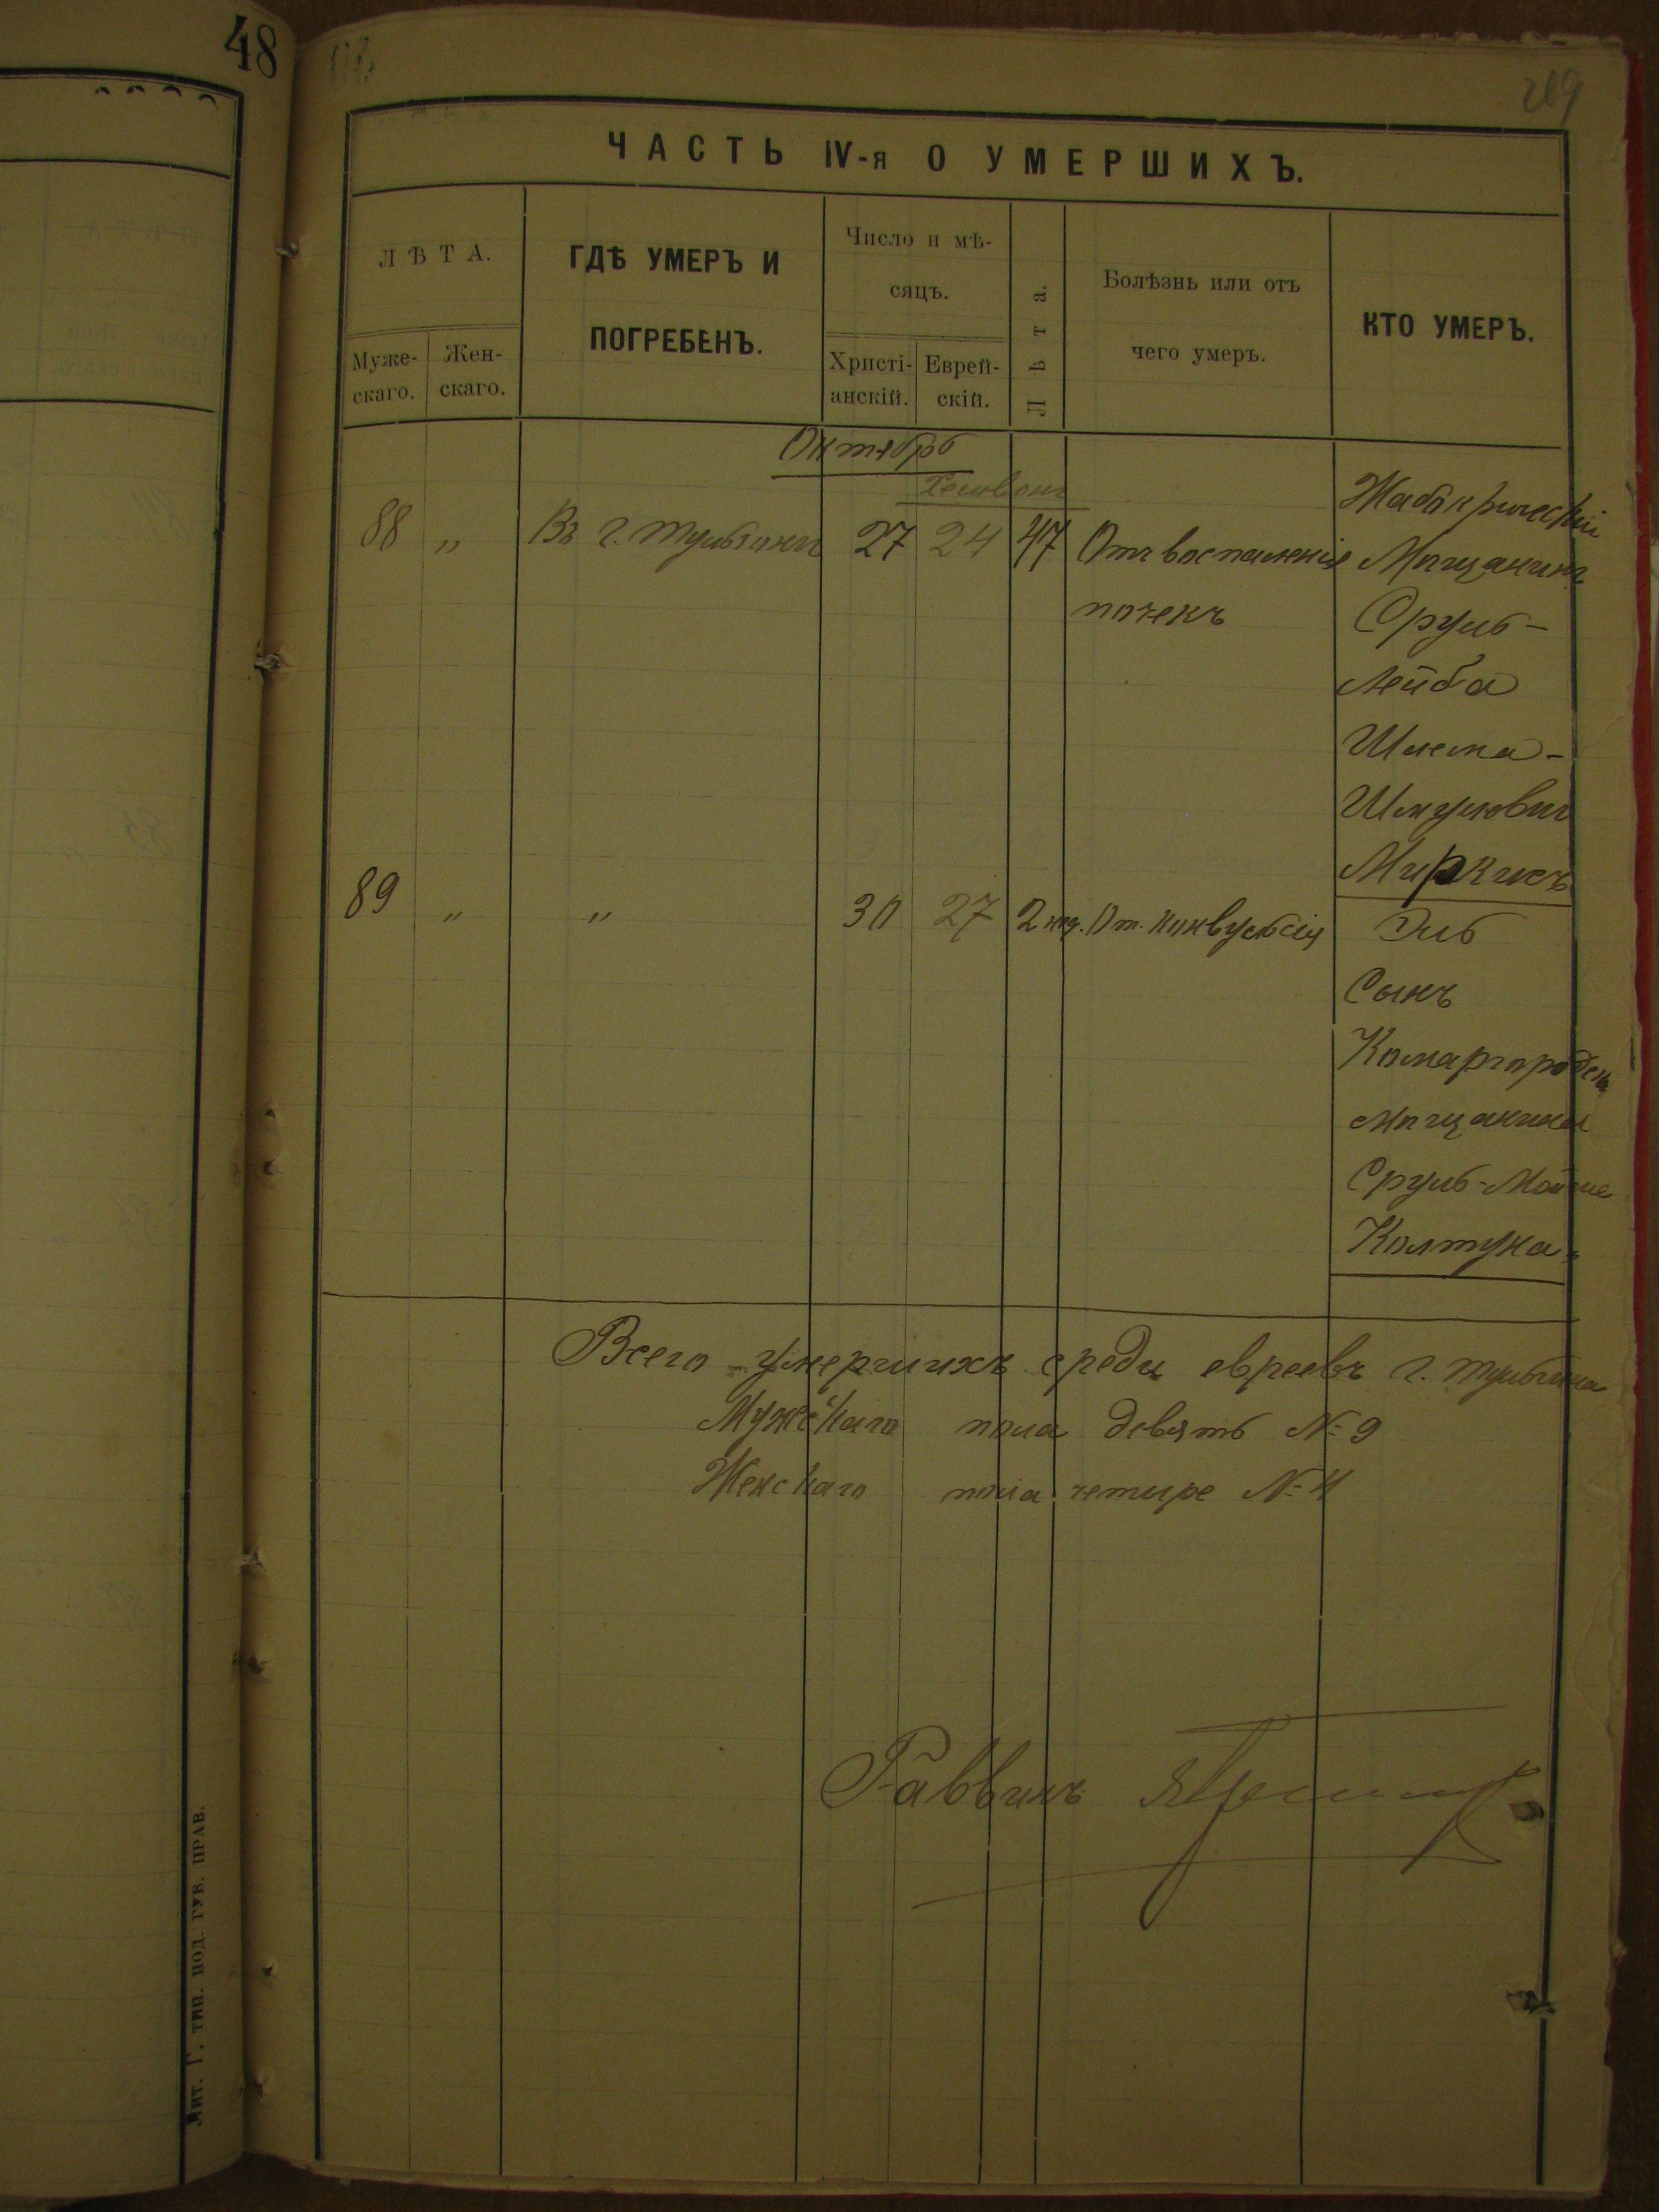 48
289
ЧАСТЬ IV-я О УМЕРШИХЪ.
ЛѢТА.
Муже-
скаго.
Жен-
скаго.
ГДѢ УМЕРЪ И
ПОГРЕБЕНЪ.
Число и мѣ-
сяцъ.
Христі-
анскій.
Еврей-
скій.
Лѣта.
Болѣзнь или отъ
чего умеръ.
КТО УМЕРЪ.
Октябрь
Хешвонъ
88 „ Въ г. Тульчинѣ 27 24 47 Отъ воспаленія
почекъ
Жабокричскій
Мѣщанинъ
Сруль-
Лейба
Шлема-
Шмулович
Миркисъ
89 „ „ 30 27 2 нед. От. конвульсія
Эль
Сынъ
Комаргородск.
мѣщанина
Сруль-Мойше
Колтуна.
Всего умершихъ среди евреевъ г. Тульчина
Мужескаго пола девять №9
Женскаго пола четире №4
Раввинъ
Лит. Г. тип. под. губ. прав.